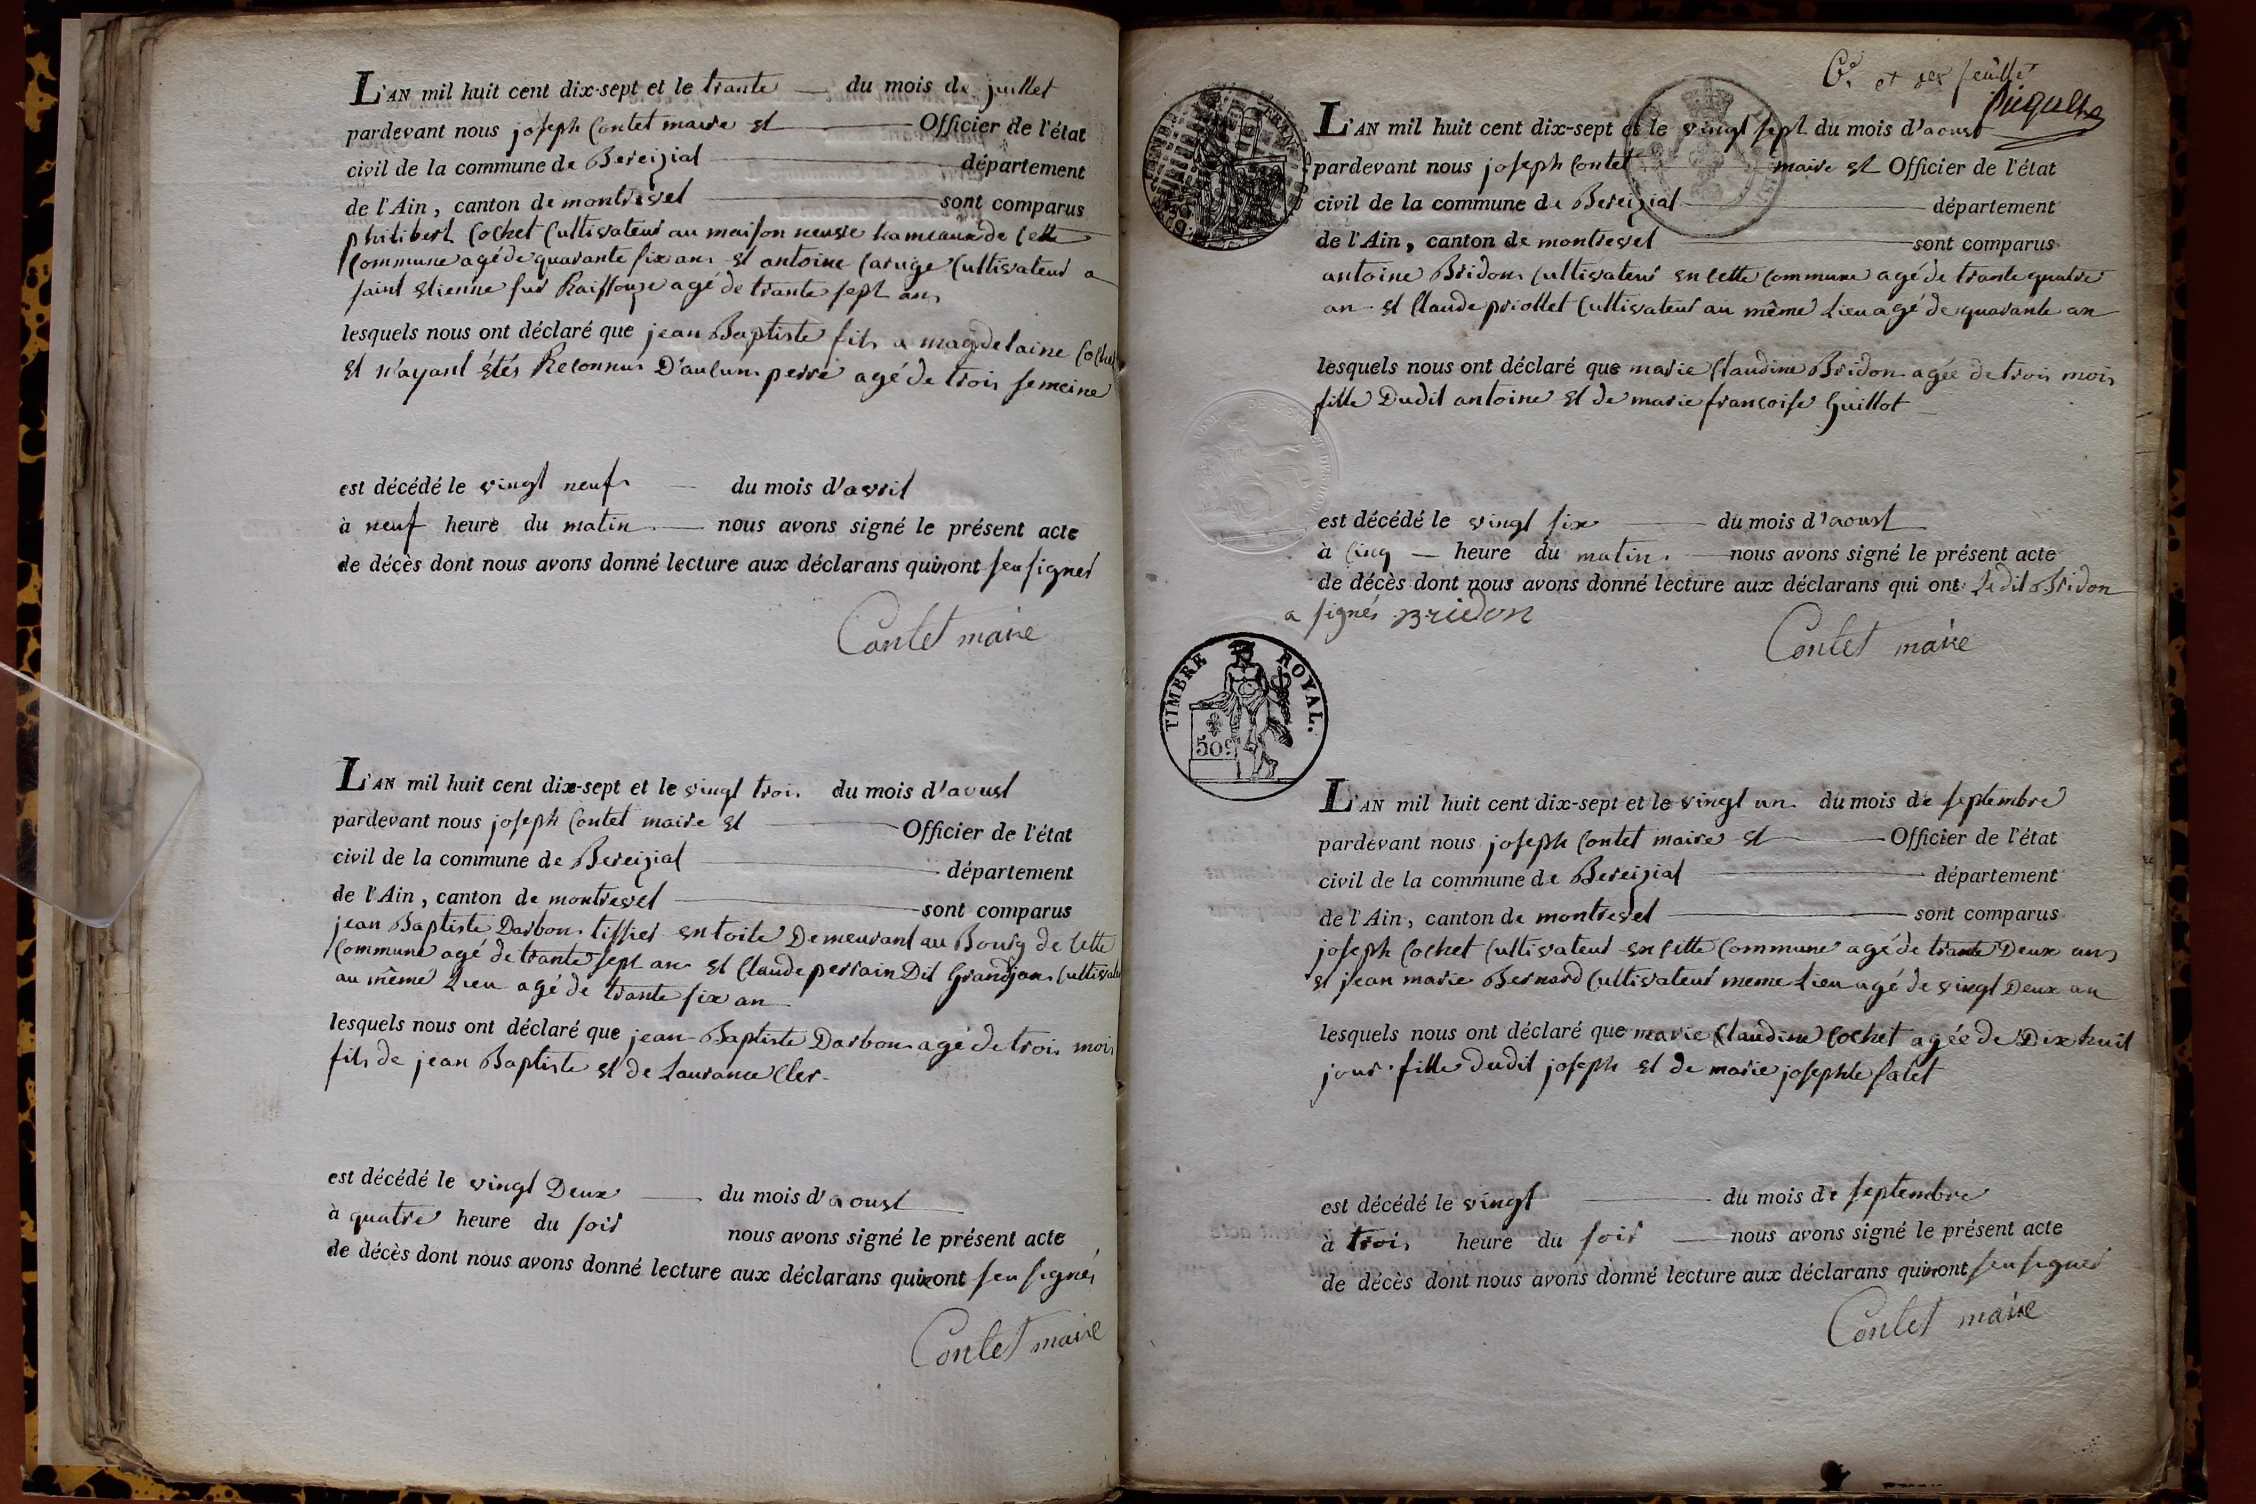 L'AN mil huit cent dix-sept et le trante du mois de juillet
pardevant nous joseph Contet maire et Officier de l'état
civil de la commune de Bereizial département
de l'Ain, canton de montrevel sont comparus
philibert Cochet Cultivateur au maison neuve hameaux de Cette
Commune agé de quarante six ans et antoine Caruge Cultivateur a
saint Etienne sur Raissouze agé de trante sept ans
lesquels nous ont déclaré que jean Baptiste fils a magdelaine Cochet
et n'ayant étés Reconnus D'aucuns perre agé de trois semeine
est décédé le vingt neuf du mois d'avril
à neuf heure du matin nous avons signé le présent acte
de décès dont nous avons donné lecture aux déclarans qui n'ont seu signer
Contet maire
L'AN mil huit cent dix-sept et le vingt trois du mois d'aoust
pardevant nous joseph Contet maire et Officier de l'état
civil de la commune de Bereizial département
de l'Ain, canton de montrevel sont comparus
jean Baptiste Darbon tissier en toile Demeurant au Bourg de Cette
Commune agé de trante sept ans et Claude perrain Dit Grandjan Cultivateur
au même Lieu agé de trante six an
lesquels nous ont déclaré que jean Baptiste Darbon agé de trois mois
fils de jean Baptiste et de Laurance Cler
est décédé le vingt Deux du mois d'aoust
à quatre heure du soir nous avons signé le présent acte
de décès dont nous avons donné lecture aux déclarans qui n'ont seu signer
Contet maire
et der feuille
L'AN mil huit cent dix-sept et le vingt sept du mois d'aoust
pardevant nous joseph Contet maire et Officier de l'état
civil de la commune de Bereizial département
de l'Ain, canton de montrevel sont comparus
antoine Bridon Cultivateur en Cette Commune agé de trante quatre
an et Claude priollet Cultivateur au même Lieu agé de quarante an
lesquels nous ont déclaré que marie Claudine Bridon agée de trois mois
fille Dudit antoine et de marie françoise Guillot
est décédé le vingt six du mois d'aoust
à Cinq heure du matin nous avons signé le présent acte
de décès dont nous avons donné lecture aux déclarans qui ont Ledit Bridon
a signés Bridon
Contet maire
TIMBRE ROYAL.
50c
L'AN mil huit cent dix-sept et le vingt un du mois de septembre
pardevant nous joseph Contet maire et Officier de l'état
civil de la commune de Bereizial département
de l'Ain, canton de montrevel sont comparus
joseph Cochet Cultivateur en Cette Commune agé de trante Deux ans
et jean marie Bernard Cultivateur meme Lieu agé de vingt Deux an
lesquels nous ont déclaré que marie Claudine Cochet agée de Dix huit
jour fille dudit joseph et de marie josephte falet
est décédé le vingt du mois de septembre
à trois heure du soir nous avons signé le présent acte
de décès dont nous avons donné lecture aux déclarans qui n'ont seu signer
Contet maire